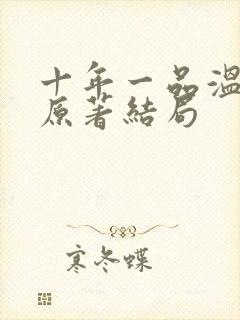 十年一品温
原著结局
寒冬蝶